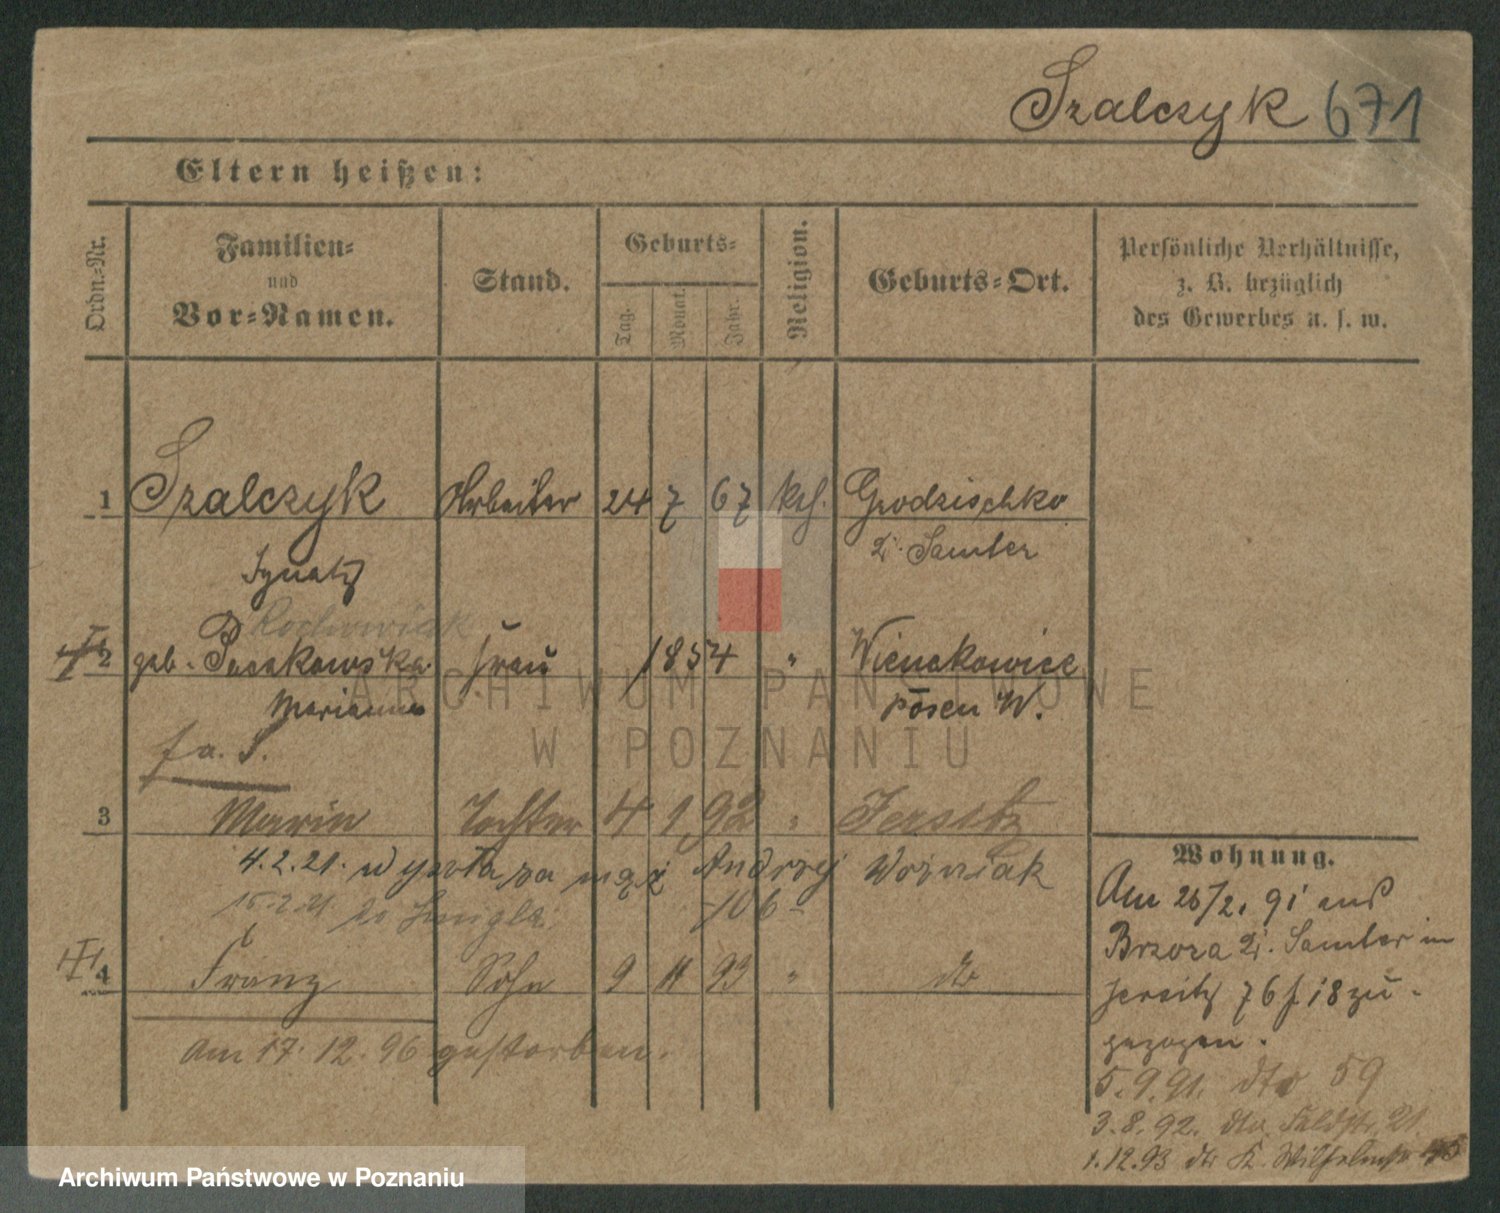 Szalczyk 671
Eltern heißen:
Ordn=Nr.
Familien=
und
Vor=Namen.
Stand.
Geburts=
Tag.
Monat.
Jahr.
Religion.
Geburts=Ort.
Persönliche Verhältnisse,
z. B. bezüglich
des Gewerbes u. s. w.
1 Szalczyk Arbeiter 24 7 67 kth. Grodzischko
Ignatz Kr. Samter
2 geb. Frau 1854 " 
Marianna Posen W.
fa. S.
3 Marie Tochter 4 1 92 " Jersitz
4.2.21. wyszła za mąż Andrzej Woźniak
15.2.21 106
4 Franz Sohn 9 11 93 " dto
Am 17. 12. 96 gestorben.
Wohnung.
Am 26/2. 91 aus
Brzoza Kr. Samter in
Jersitz 76 f. 18 zu=
gezogen.
5.9.91. dto 59
3.8.92. dto Feldstr. 21
1.12.93 dto K. Wilhelmstr 45
ARCHIWUM PAŃSTWOWE
W POZNANIU
Archiwum Państwowe w Poznaniu